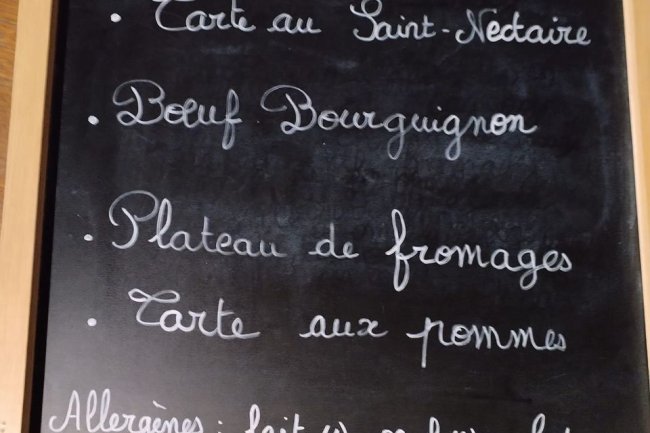 • Tarte au Saint-Nectaire
• Bœuf Bourguignon
• Plateau de fromages
• Tarte aux pommes
Allergènes : lait